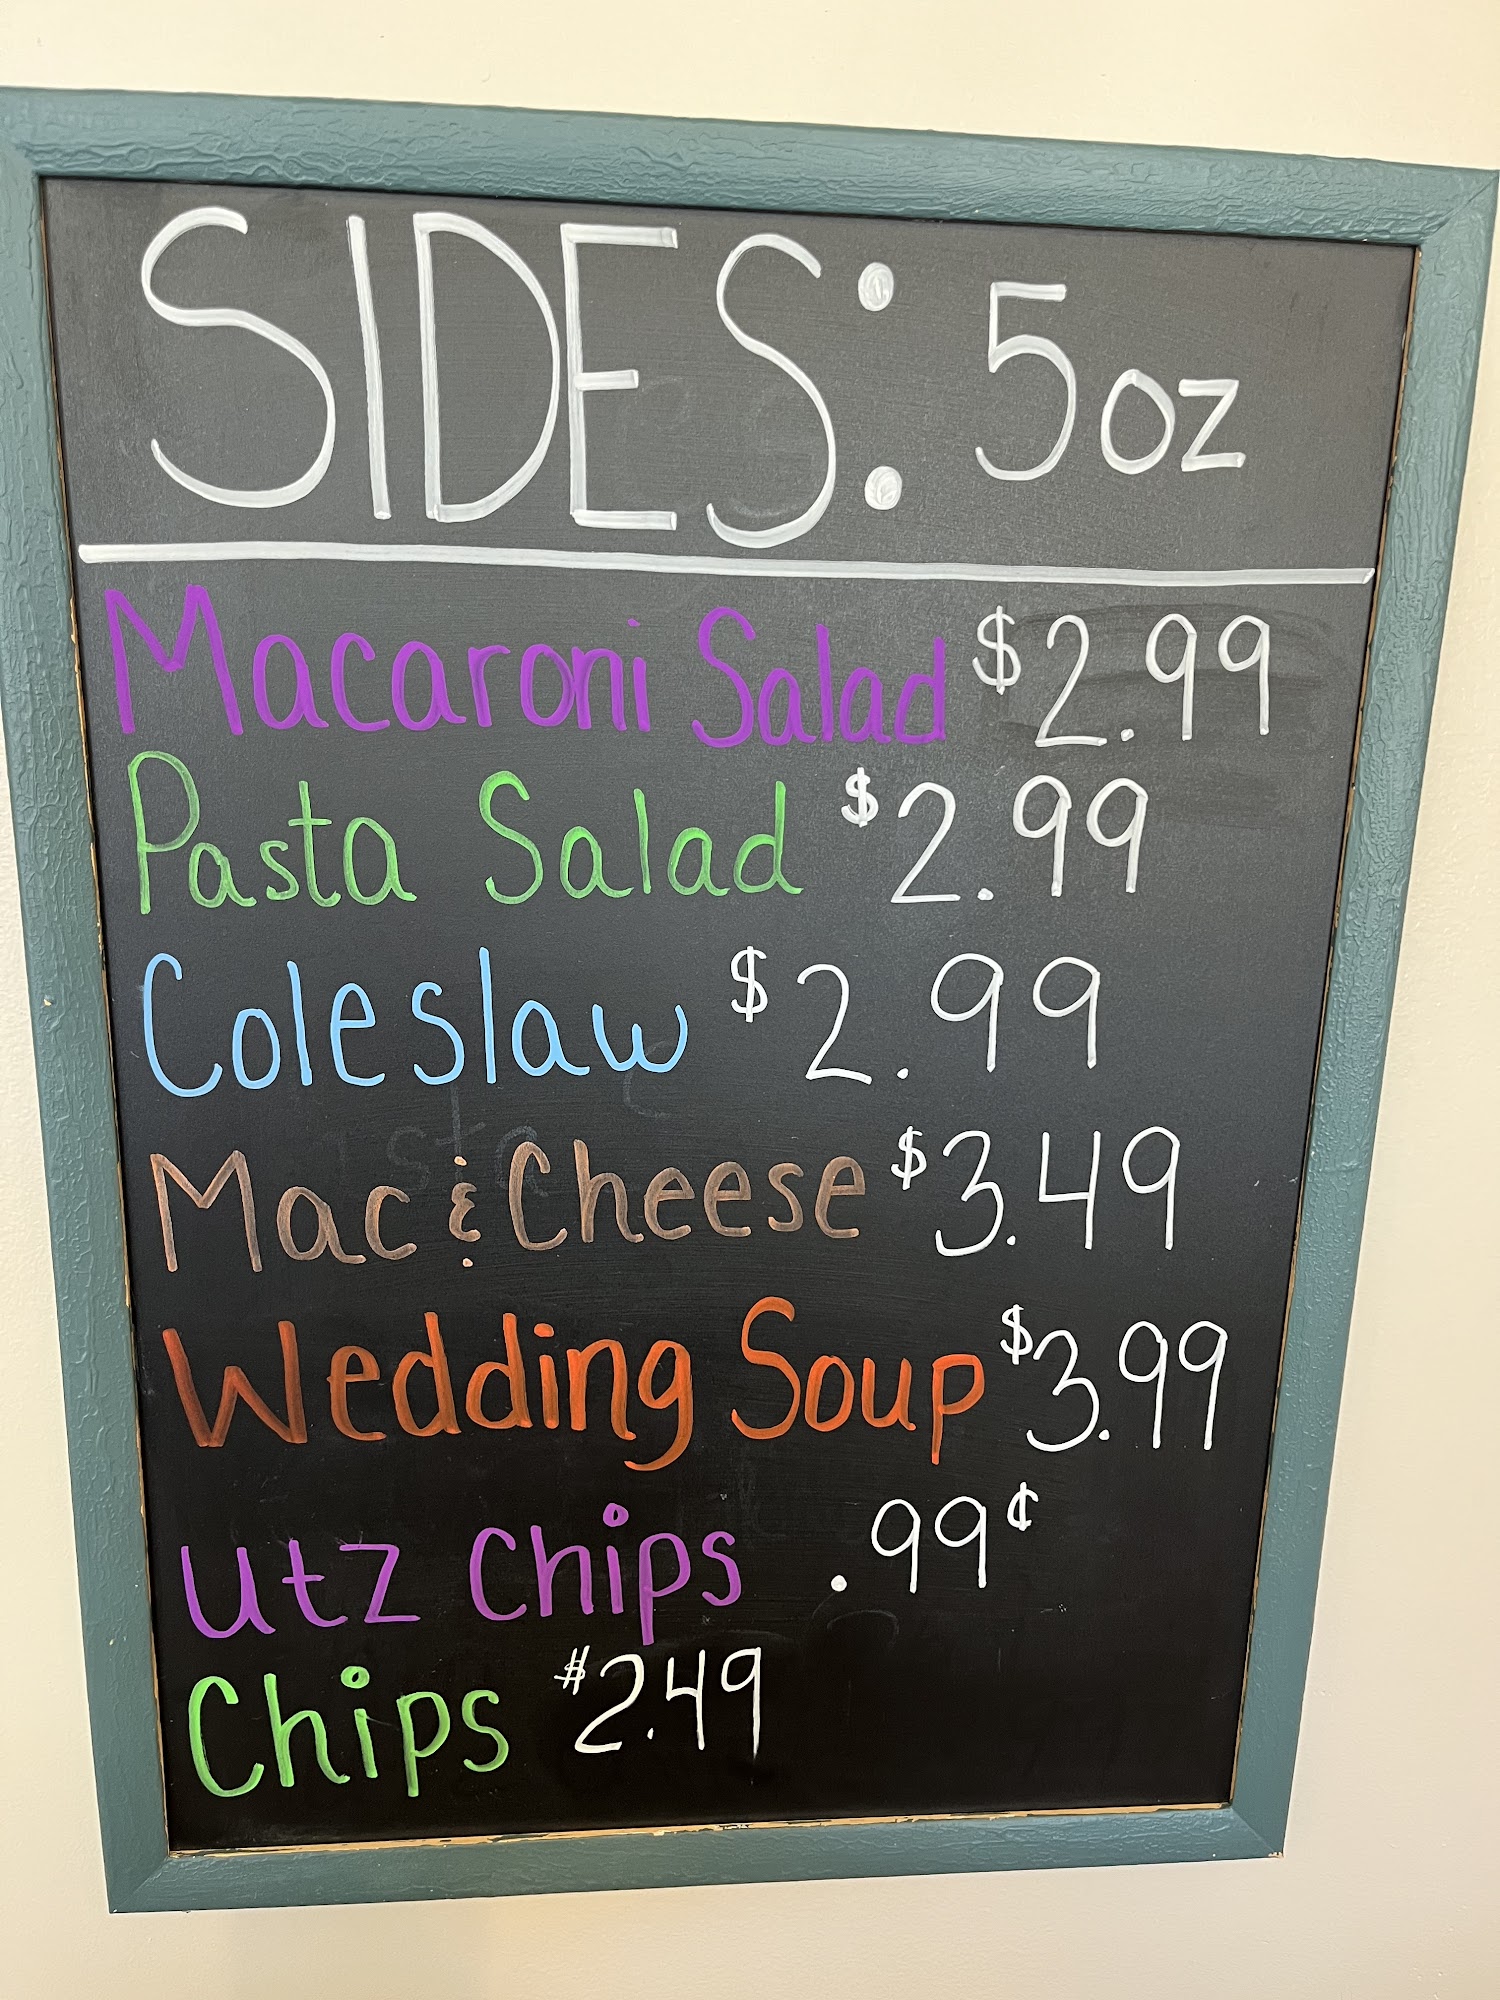 SIDES: 5oz
Macaroni Salad $2.99
Pasta Salad $2.99
Coleslaw $2.99
Mac & Cheese $3.49
Wedding Soup $3.99
Utz Chips .99¢
Chips $2.49